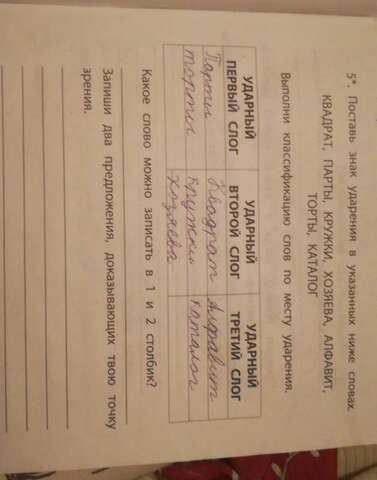 5*. Поставь знак ударения в указанных ниже словах.
КВАДРАТ, ПАРТЫ, КРУЖКИ, ХОЗЯЕВА, АЛФАВИТ,
ТОРТЫ, КАТАЛОГ
Выполни классификацию слов по месту ударения.
УДАРНЫЙ ПЕРВЫЙ СЛОГ УДАРНЫЙ ВТОРОЙ СЛОГ УДАРНЫЙ ТРЕТИЙ СЛОГ
Парты Квадрат Алфавит
торты кружки каталог
хозяева
Какое слово можно записать в 1 и 2 столбик?
Запиши два предложения, доказывающих твою точку
зрения.